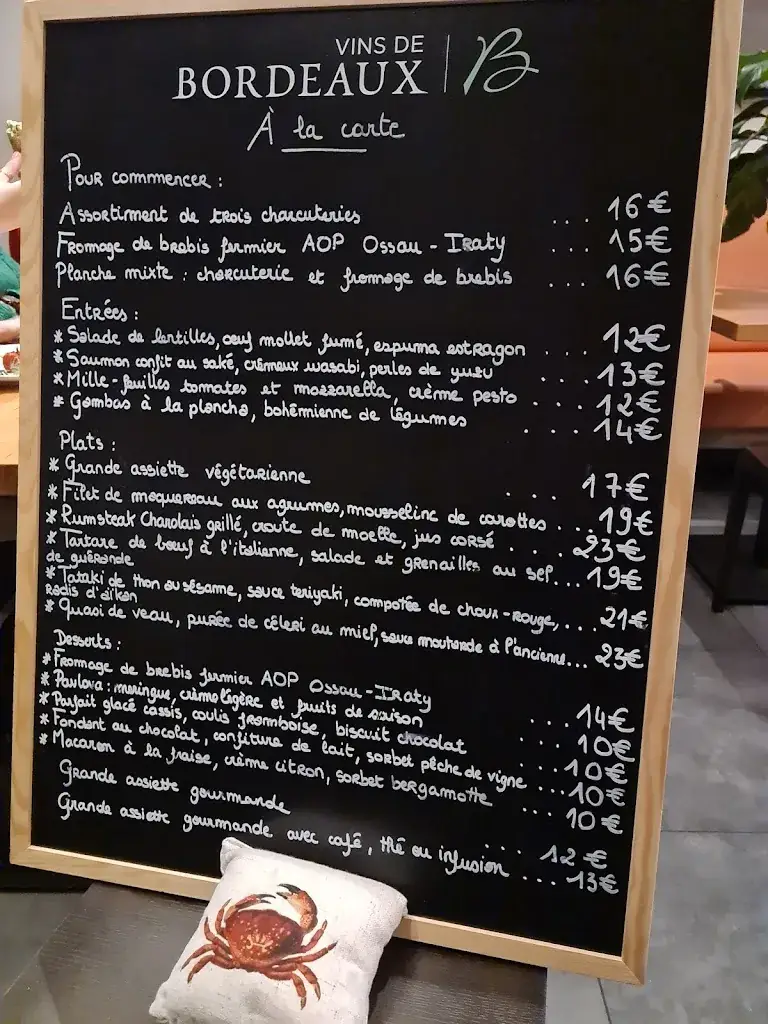 VINS DE
BORDEAUX | B
À la carte
Pour commencer :
Assortiment de trois charcuteries ... 16€
Fromage de brebis fermier AOP Ossau-Iraty ... 15€
Planche mixte : charcuterie et fromage de brebis ... 16€
Entrées :
* Salade de lentilles, oeuf mollet fumé, espuma estragon .... 12€
* Saumon confit au saké, crémeux wasabi, perles de yuzu .... 13€
* Mille-feuilles tomates et mozzarella, crème pesto ... 12€
* Gambas à la plancha, bohémienne de légumes .... 14€
Plats :
* Grande assiette végétarienne .... 17€
* Filet de maquereau aux agrumes, mousseline de carottes ... 19€
* Rumsteak Charolais grillé, croute de moelle, jus corsé .... 23€
* Tartare de boeuf à l'italienne, salade et grenailles au sel... 19€
de guérande
* Tataki de thon au sésame, sauce teriyaki, compotée de choux-rouge,... 21€
Radis d'aïkon
* Quasi de veau, purée de céleri au miel, sauce moutarde à l'ancienne... 23€
Desserts :
* Fromage de brebis fermier AOP Ossau-Iraty ... 14€
* Pavlova : meringue, crème légère et fruits de saison .... 10€
* Parfait glacé cassis, coulis framboise, biscuit chocolat ...10€
* Fondant au chocolat, confiture de lait, sorbet pêche de vigne ... 10€
* Macaron à la fraise, crème citron, sorbet bergamotte ... 10€
Grande assiette gourmande .... 12€
Grande assiette gourmande avec café, thé ou infusion .... 13€